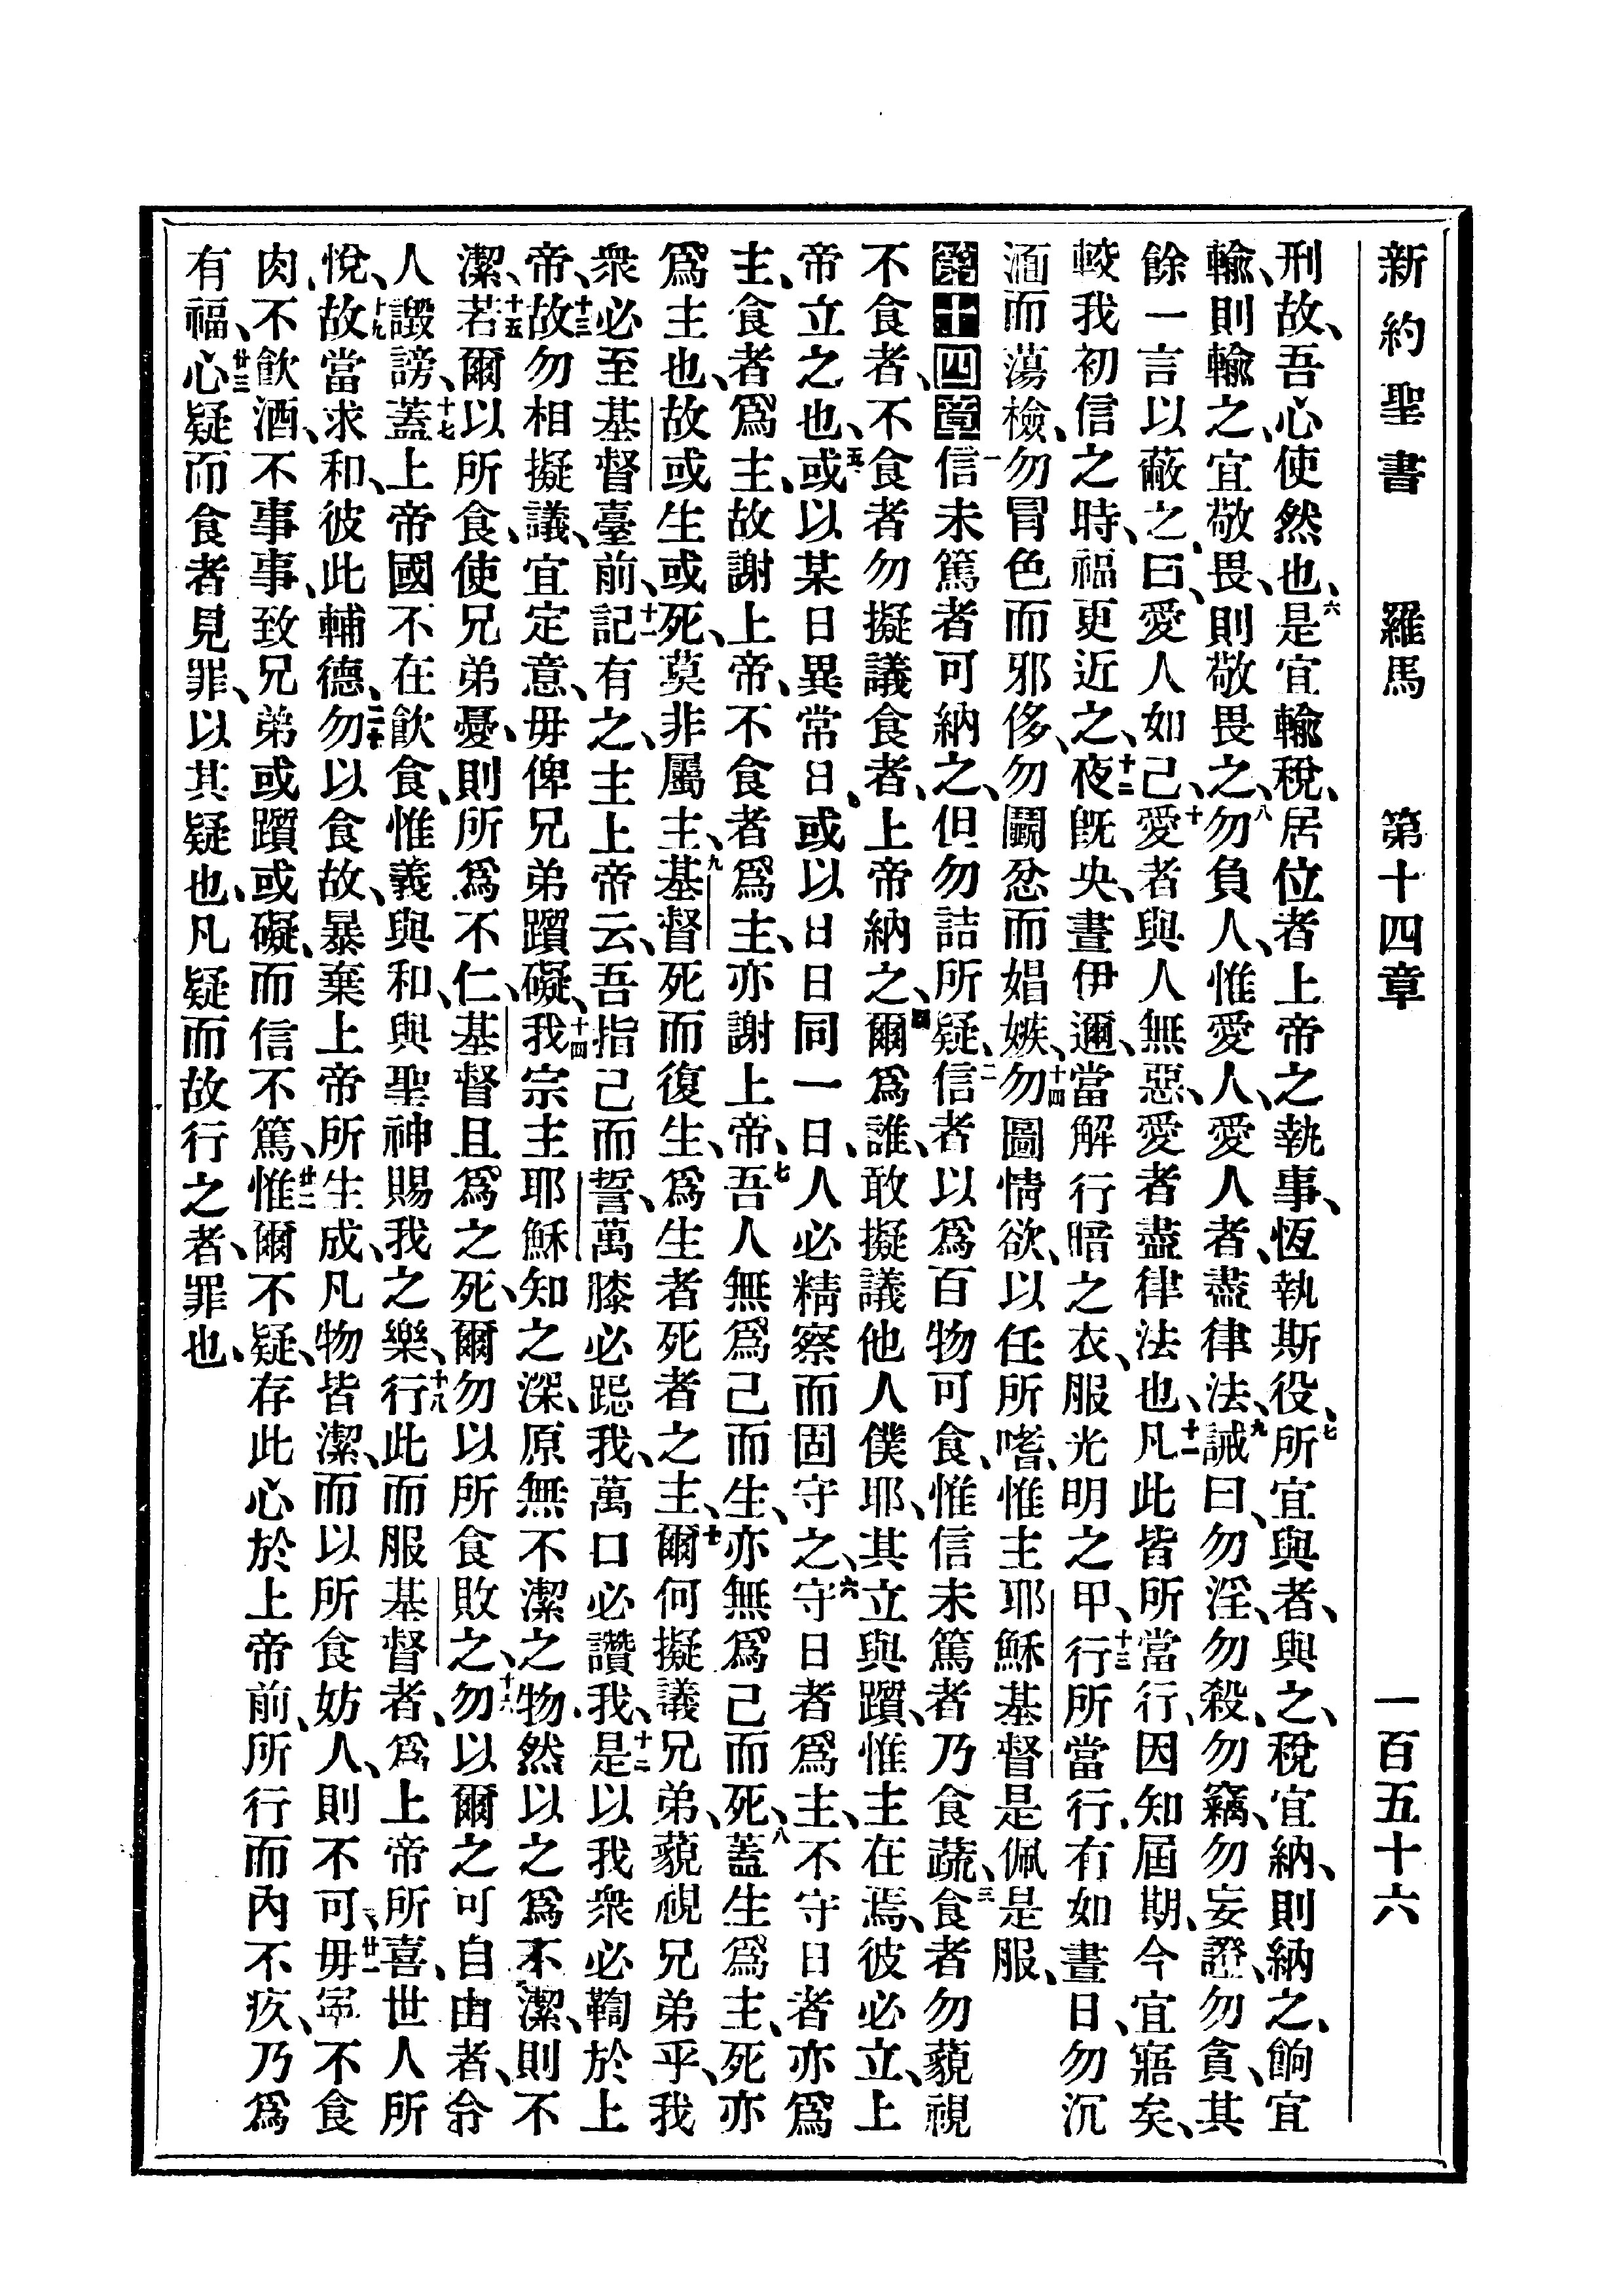 新約聖書 羅馬 第十四章 一百五十六
刑故、吾心使然也、六是宜輸稅、居位者上帝之執事、恆執斯役、七所宜與者、與之、稅宜納、則納之、餉宜
輸、則輸之、宜敬畏、則敬畏之、八勿負人、惟愛人、愛人者、盡律法、九誡曰、勿淫、勿殺、勿竊、勿妄證、勿貪、其
餘一言以蔽之、曰、愛人如己、十愛者與人無惡、愛者盡律法也、十一凡此皆所當行、因知屆期、今宜寤矣、
較我初信之時、福更近之、十二夜旣央、晝伊邇、當解行暗之衣、服光明之甲、十三行所當行、有如晝日、勿沉
湎而蕩檢、勿冒色而邪侈、勿鬬忿而娼嫉、十四勿圖情欲、以任所嗜、惟主耶穌基督是佩是服、
第十四章 一信未篤者可納之、但勿詰所疑、二信者以爲百物可食、惟信未篤者乃食蔬、三食者勿藐視
不食者、不食者勿擬議食者、上帝納之、四爾爲誰、敢擬議他人僕耶、其立與躓、惟主在焉、彼必立、上
帝立之也、五或以某日異常日、或以日日同一日、人必精察而固守之、六守日者爲主、不守日者亦爲
主、食者、爲主、故謝上帝、不食者爲主、亦謝上帝、七吾人無爲己而生、亦無爲己而死、八蓋生爲主、死亦
爲主也、故或生或死、莫非屬主、九基督死而復生、爲生者死者之主、十爾何擬議兄弟、藐視兄弟乎、我
衆必至基督臺前、十一記有之、主上帝云、吾指己而誓、萬膝必跽我、萬口必讚我、十二是以我衆必鞫於上
帝、十三故勿相擬議、宜定意、毋俾兄弟躓礙、十四我宗主耶穌知之深、原無不潔之物、然以之爲不潔、則不
潔、十五若爾以所食、使兄弟憂、則所爲不仁、基督且爲之死、爾勿以所食敗之、十六勿以爾之可自由者、令
人譭謗、十七蓋上帝國不在飲食、惟義與和、與聖神賜我之樂、十八行此而服基督者、爲上帝所喜、世人所
悅、十九故當求和、彼此輔德、二十勿以食故、暴棄上帝所生成、凡物皆潔、而以所食妨人、則不可、廿一毋寧不食
肉、不飲酒、不事事、致兄弟或躓或礙、而信不篤、廿二惟爾不疑、存此心於上帝前、所行而內不疚、乃爲
有福、廿三心疑而食者見罪、以其疑也、凡疑而故行之者、罪也、